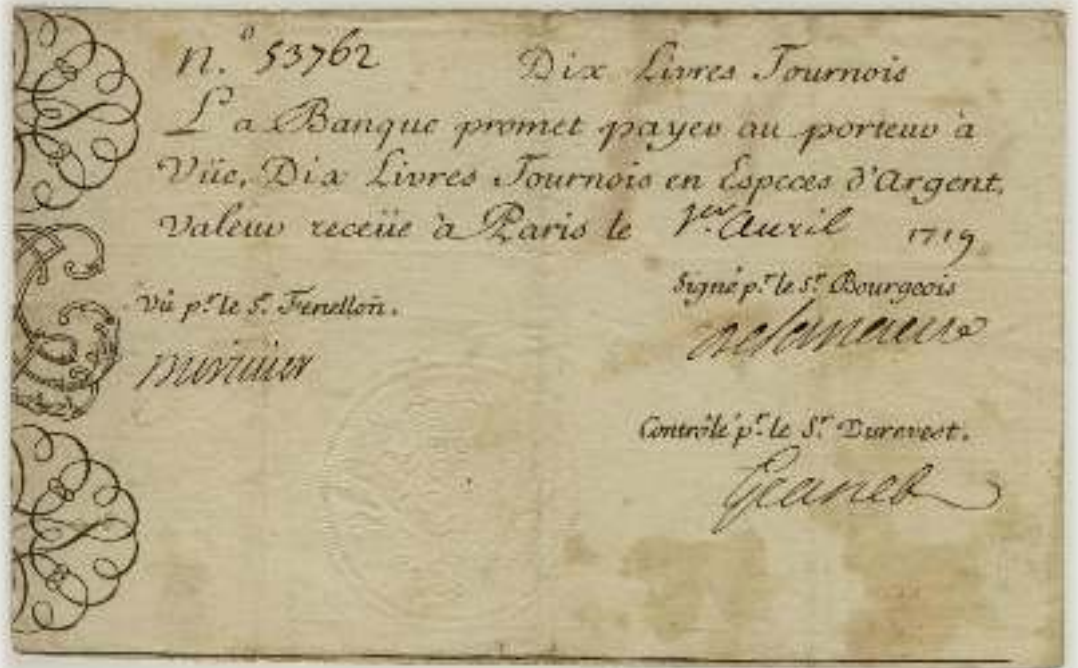 N.º 53762 Dix Livres Tournois
La Banque promet payer au porteur à
Vüe, Dix Livres Tournois en Especes d'Argent,
valeur receüe à Paris le 1.er Avril 1719
Vû p.r le S.r Fenellon.
Signé p.r le S.r Bourgeois
Contrôlé p.r le S.r Durevest.
Granet